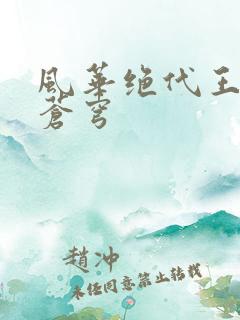 風華绝代王
蒼穹
趙冲
未经同意禁止转载